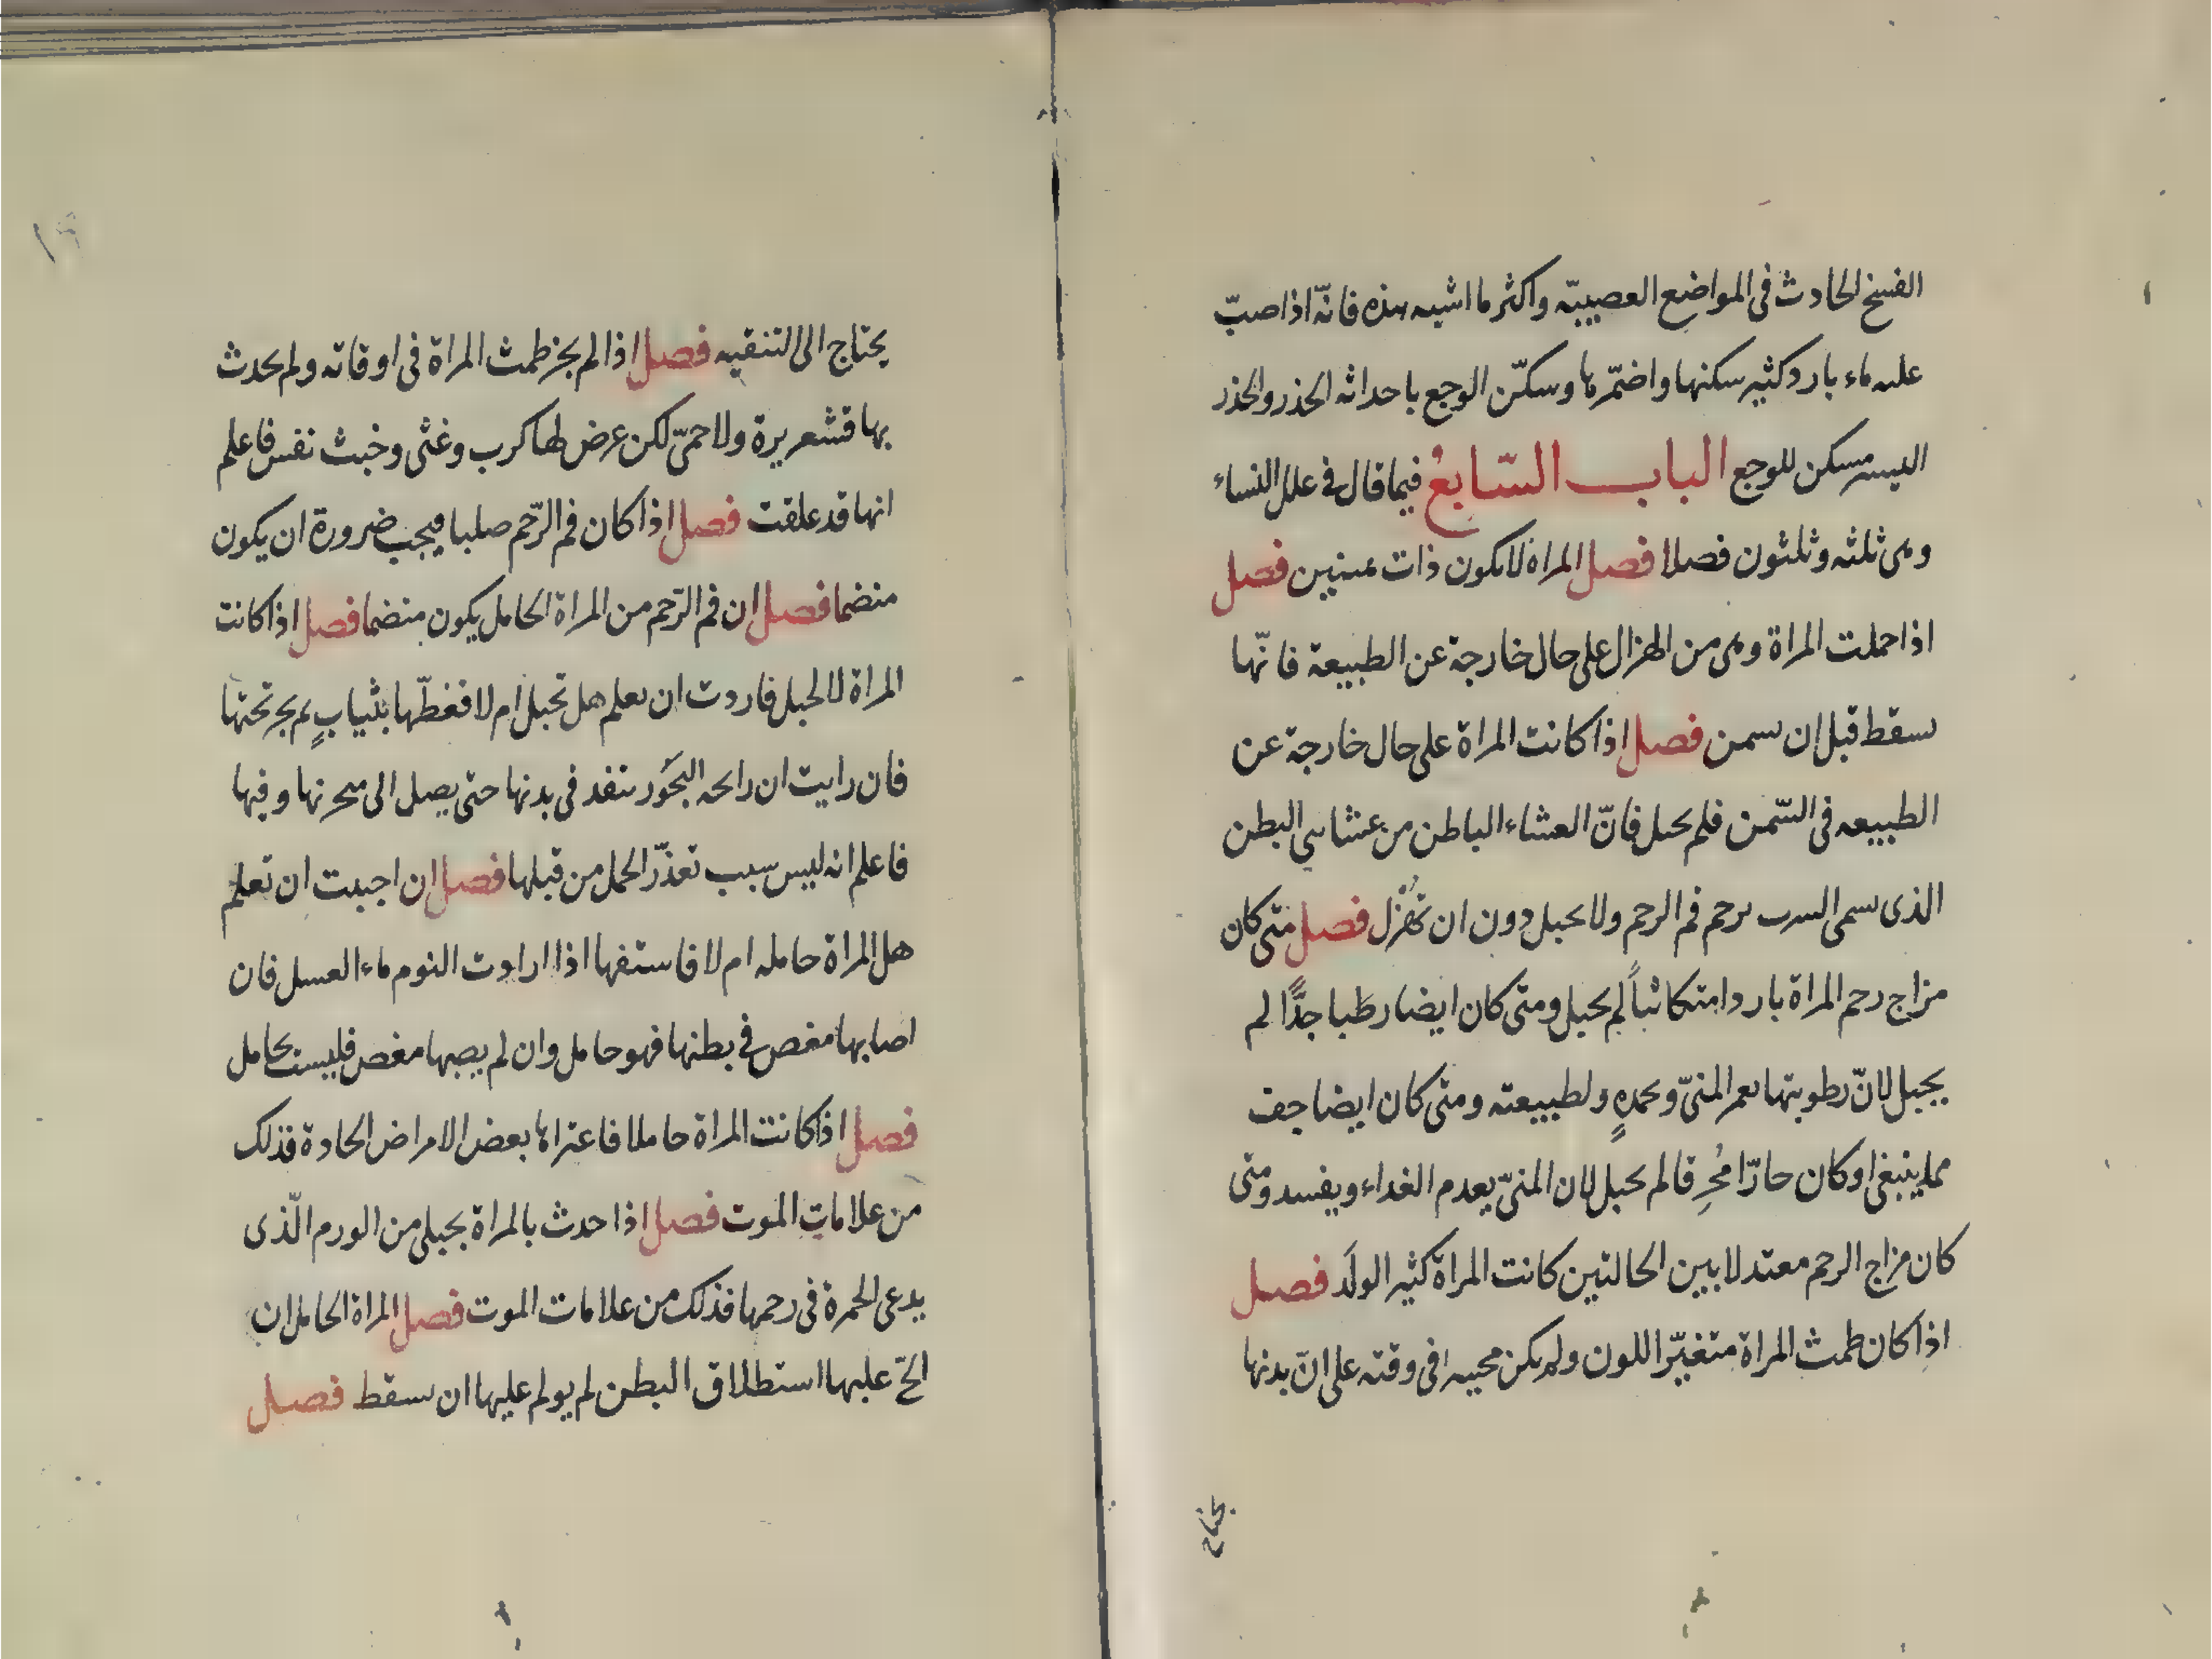 الفسخ الحادث فى المواضع العصبيّه واكثر ما اشبه هذه فانّه اذا صبّ
عليه ماء بارد كثير سكنها واضمّرها وسكّن الوجع باحداثه الخدر والخدر
اليسير مسكن للوجع الباب السّابعُ فيما قال فى علل النساء
وهى ثلثه وثلثون فصلا فصل المراة لا تكون ذات يمينين فصل
اذا حملت المراة وهى من الهزال على حال خارجة عن الطبيعة فانّها
تسقط قبل ان تسمن فصل اذا كانت المراة على حال خارجة عن
الطبيعه فى السّمن فلم تحبل فانّ الغشاء الباطن من غشايي البطن
الذى يسمى الثرب يزحم فم الرحم ولا تحبل دون ان تُهزل فصل متى كان
مزاج رحم المراة باردا متكاثفاً لم يحبل ومتى كان ايضا رطبا جدًّا لم
يحبل لانّ رطوبتها تغمر المنىّ وتخمده وتطفيه ومتى كان ايضا جف
مما ينبغى او كان حارّا مُحرِقا لم تحبل لان المنىّ يعدم الغداء ويفسد ومتى
كان مزاج الرحم معتدلا بين الحالتين كانت المراة كثير الولَد فصل
اذا كان طمث المراة متغيّر اللون ولم يكن مجيه فى وقته على انّ بدنها
يحتاج
يحتاج الى التنقيه فصل اذا لم يجز طمث المراة فى اوقاته ولم يحدث
بها قشعريرة ولا حمىّ لكن عرض لها كرب وغثى وخبث نفس فاعلم
انها قد علقت فصل اذا كان فم الرّحم صلبا فيجب ضرورة ان يكون
منضما فصل ان فم الرّحم من المراة الحامل يكون منضما فصل اذا كانت
المراة لا تحبل فاردت ان تعلم هل تحبل ام لا فغطّها بثيابٍ ثم بخر تحتها
فان رايت ان رائحه البخَور تنفد فى بدنها حتى يصل الى منخرنها وفيها
فاعلم انه ليس سبب تعذّر الحمل من قبلها فصل ان احببت ان تعلم
هل المراة حامله ام لا فاستقها اذا ارادت النوم ماء العسل فان
اصابها مغص فى بطنها فهو حامل وان لم يصبها مغص فليست بحامل
فصل اذا كانت المراة حاملا فاعتراها بعض الامراض الحادة فذلك
من علامات الموت فصل اذا حدث بالمراة بحبلى من الورم الّذى
يدعى الحمرة فى رحمها فذلك من علامات الموت فصل المراة الحامل ان
الحّ عليها استطلاق البطن لم يولم عليها ان تسقط فصل